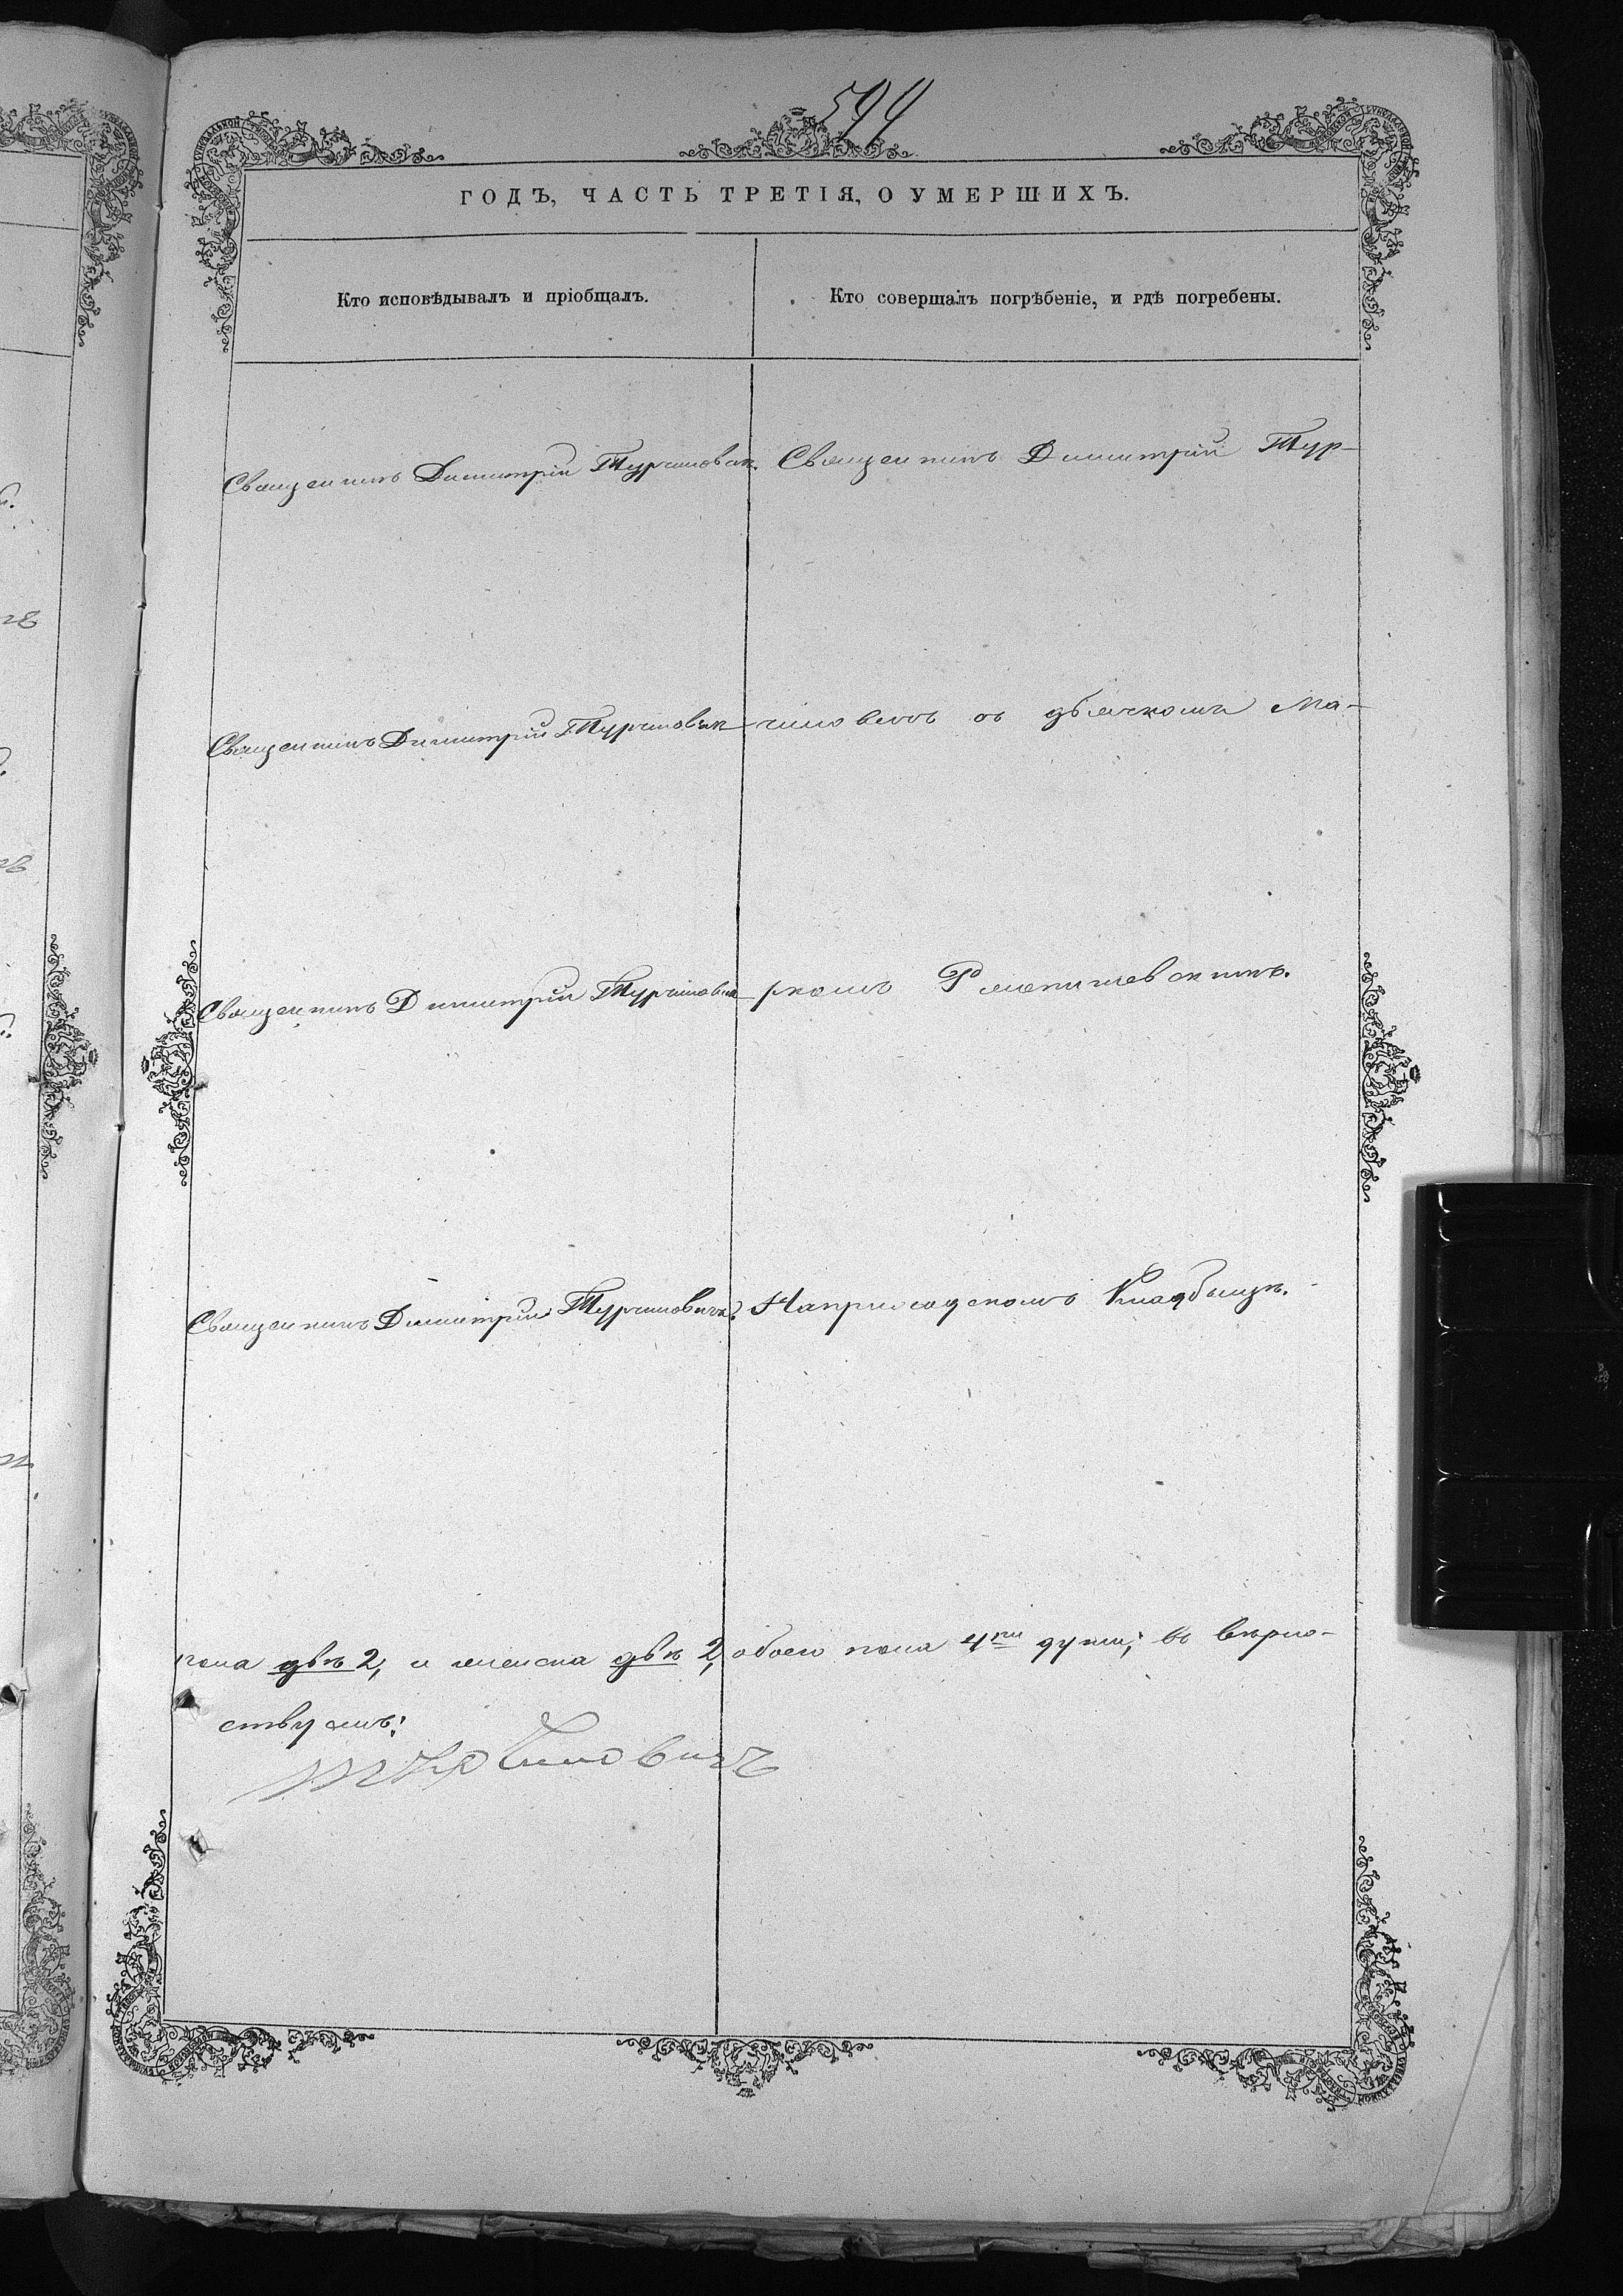 594
ГОДЪ, ЧАСТЬ ТРЕТІЯ, О УМЕРШИХЪ.
Кто исповѣдывалъ и пріобщалъ.
Кто совершалъ погрѣбеніе, и гдѣ погребены.
Священникъ Димитрій Турчиновичъ
Священникъ Димитрій Тур-
Священникъ Димитрій Турчиновичъ
чиновичъ съ дьячкомъ Ма-
Священникъ Димитрій Турчиновичъ
ркомъ
Священникъ Димитрій Турчиновичъ.
На приходскомъ кладбищѣ.
пола двѣ 2, и женска двѣ 2, обоего пола 4ри души; въ вѣрно-
ствуемъ:
Турчиновичъ